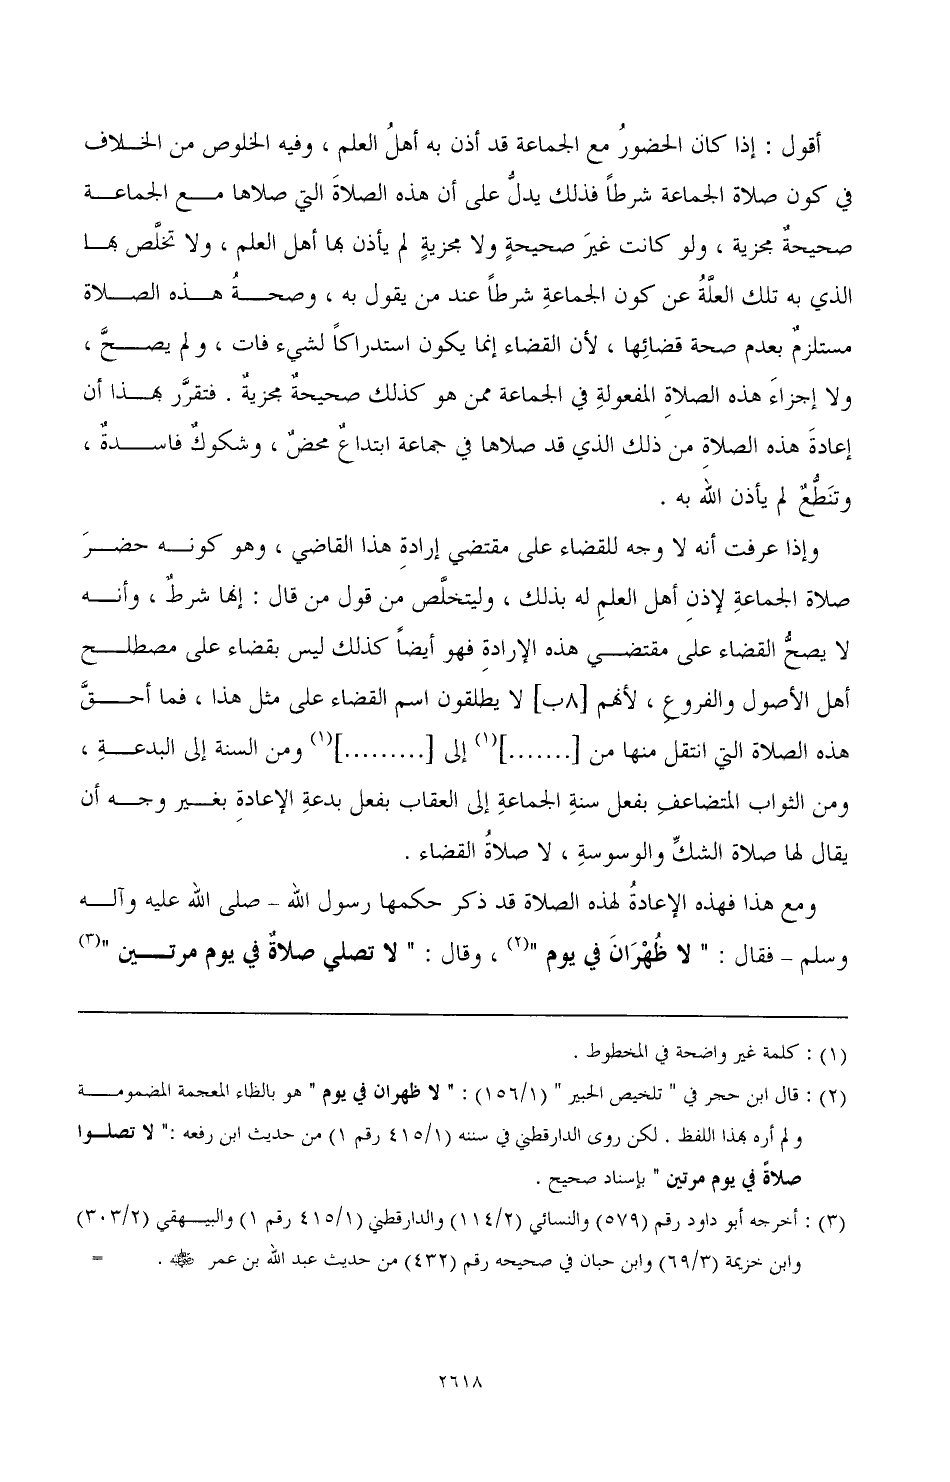 أقول : إذا كان الحضورُ مع الجماعة قد أذن به أهلُ العلم ، وفيه الخلوص من الخلاف
في كون صلاة الجماعة شرطاً فذلك يدلُّ على أن هذه الصلاةَ التي صلاها مع الجماعة
صحيحةٌ مجزية ، ولو كانت غيرَ صحيحةٍ ولا مجزيةٍ لم يأذن بها أهل العلم ، ولا تخلَّص بها
الذي به تلك العلَّةُ عن كون الجماعةِ شرطاً عند من يقول به ، وصحةُ هذه الصلاة
مستلزمٌ بعدم صحة قضائِها ، لأن القضاء إنما يكون استدراكاً لشيء فات ، ولم يصحَّ ،
ولا إجزاءَ هذه الصلاةِ المفعولةِ في الجماعة ممن هو كذلك صحيحةٌ مجزيةٌ . فتقرَّر بهذا أن
إعادةَ هذه الصلاةِ من ذلك الذي قد صلاها في جماعة ابتداعٌ محضٌ ، وشكوكٌ فاسدةٌ ،
وتنَطُّعٌ لم يأذن اللهُ به .
وإذا عرفت أنه لا وجه للقضاء على مقتضي إرادةِ هذا القاضي ، وهو كونه حضرَ
صلاة الجماعةِ لإذنِ أهل العلمِ له بذلك ، وليتخلَّص من قول من قال : إنها شرطٌ ، وأنه
لا يصحُّ القضاء على مقتضي هذه الإرادةِ فهو أيضاً كذلك ليس بقضاء على مصطلح
أهل الأصول والفروعِ ، لأنهم [٨ب] لا يطلقون اسم القضاء على مثل هذا ، فما أحقَّ
هذه الصلاة التي انتقل منها من [.......](١) إلى [.........](١) ومن السنة إلى البدعةِ ،
ومن الثواب المتضاعفِ بفعل سنةِ الجماعةِ إلى العقاب بفعل بدعةِ الإعادةِ بغير وجه أن
يقال لها صلاة الشكِّ والوسوسةِ ، لا صلاةُ القضاء .
ومع هذا فهذه الإعادةُ لهذه الصلاة قد ذكر حكمها رسول الله - صلى الله عليه وآله
وسلم - فقال : " لا ظُهْرَانَ في يوم "(٢) ، وقال : " لا تصلي صلاةٌ في يوم مرتين "(٣)
(١) : كلمة غير واضحة في المخطوط .
(٢) : قال ابن حجر في " تلخيص الحبير " (١/١٥٦) : " لا ظهران في يوم " هو بالظاء المعجمة المضمومة
ولم أره بهذا اللفظ . لكن روى الدارقطني في سننه (١/٤١٥ رقم ١) من حديث ابن رفعه :" لا تصلوا
صلاةً في يوم مرتين " بإسناد صحيح .
(٣) : أخرجه أبو داود رقم (٥٧٩) والنسائي (٢/١١٤) والدارقطني (١/٤١٥ رقم ١) والبيهقي (٢/٣٠٣)
وابن خزيمة (٣/٦٩) وابن حبان في صحيحه رقم (٤٣٢) من حديث عبد الله بن عمر ﷺ . =
٢٦١٨